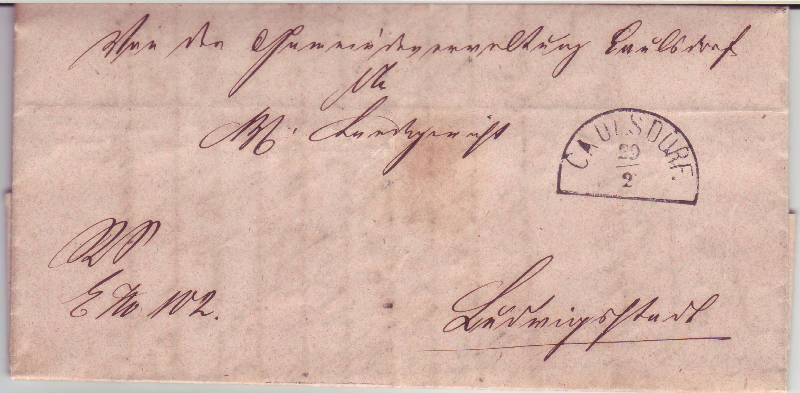 Von der Gemeindeverwaltung Caulsdorf
An
K. Landgericht
CAULSDORF.
29
2
RS
E No 102.
Ludwigsstadt